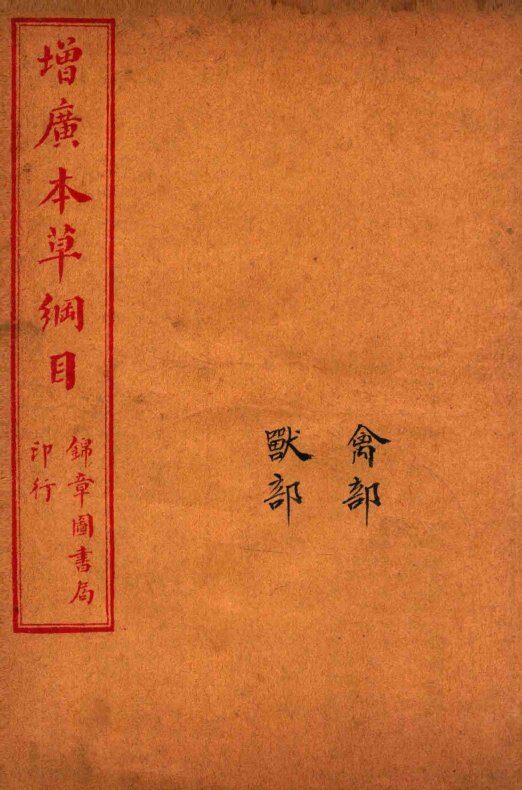 增廣本草綱目
錦章圖書局
印行
禽部
獸部